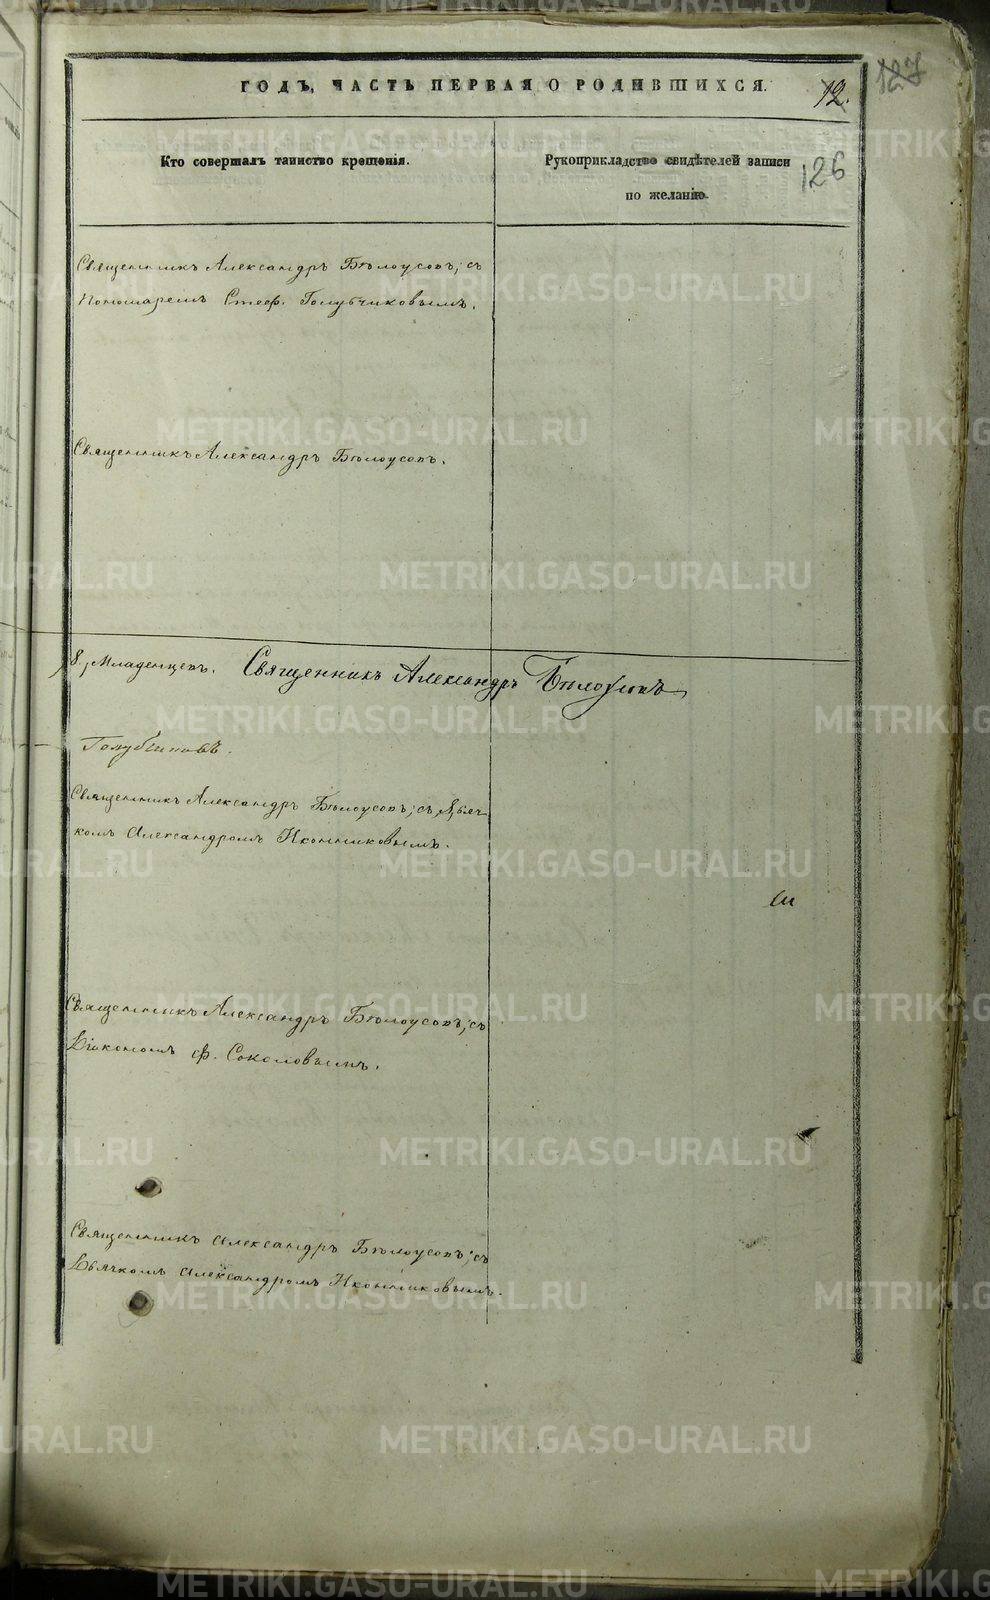 ГОДЪ, ЧАСТЬ ПЕРВАЯ О РОДИВШИХСЯ.
12.
127
126
Кто совершалъ таинство крещенія.
Рукоприкладство свидѣтелей записи
по желанію.
Священникъ Александръ Бѣлоусовъ; съ
Пономаремъ Стеф. Голубчиковымъ.
Священникъ Александръ Бѣлоусовъ.
8., Младенцевъ. Священникъ Александръ Бѣлоусовъ
Священникъ Александръ Бѣлоусовъ; съ Дьяч-
комъ Александромъ Иконниковымъ.
Священникъ Александръ Бѣлоусовъ; съ
Діакономъ Ф. Соколовымъ.
Священникъ Александръ Бѣлоусовъ; съ
Дьячкомъ Александромъ Иконниковымъ.
METRIKI.GASO-URAL.RU